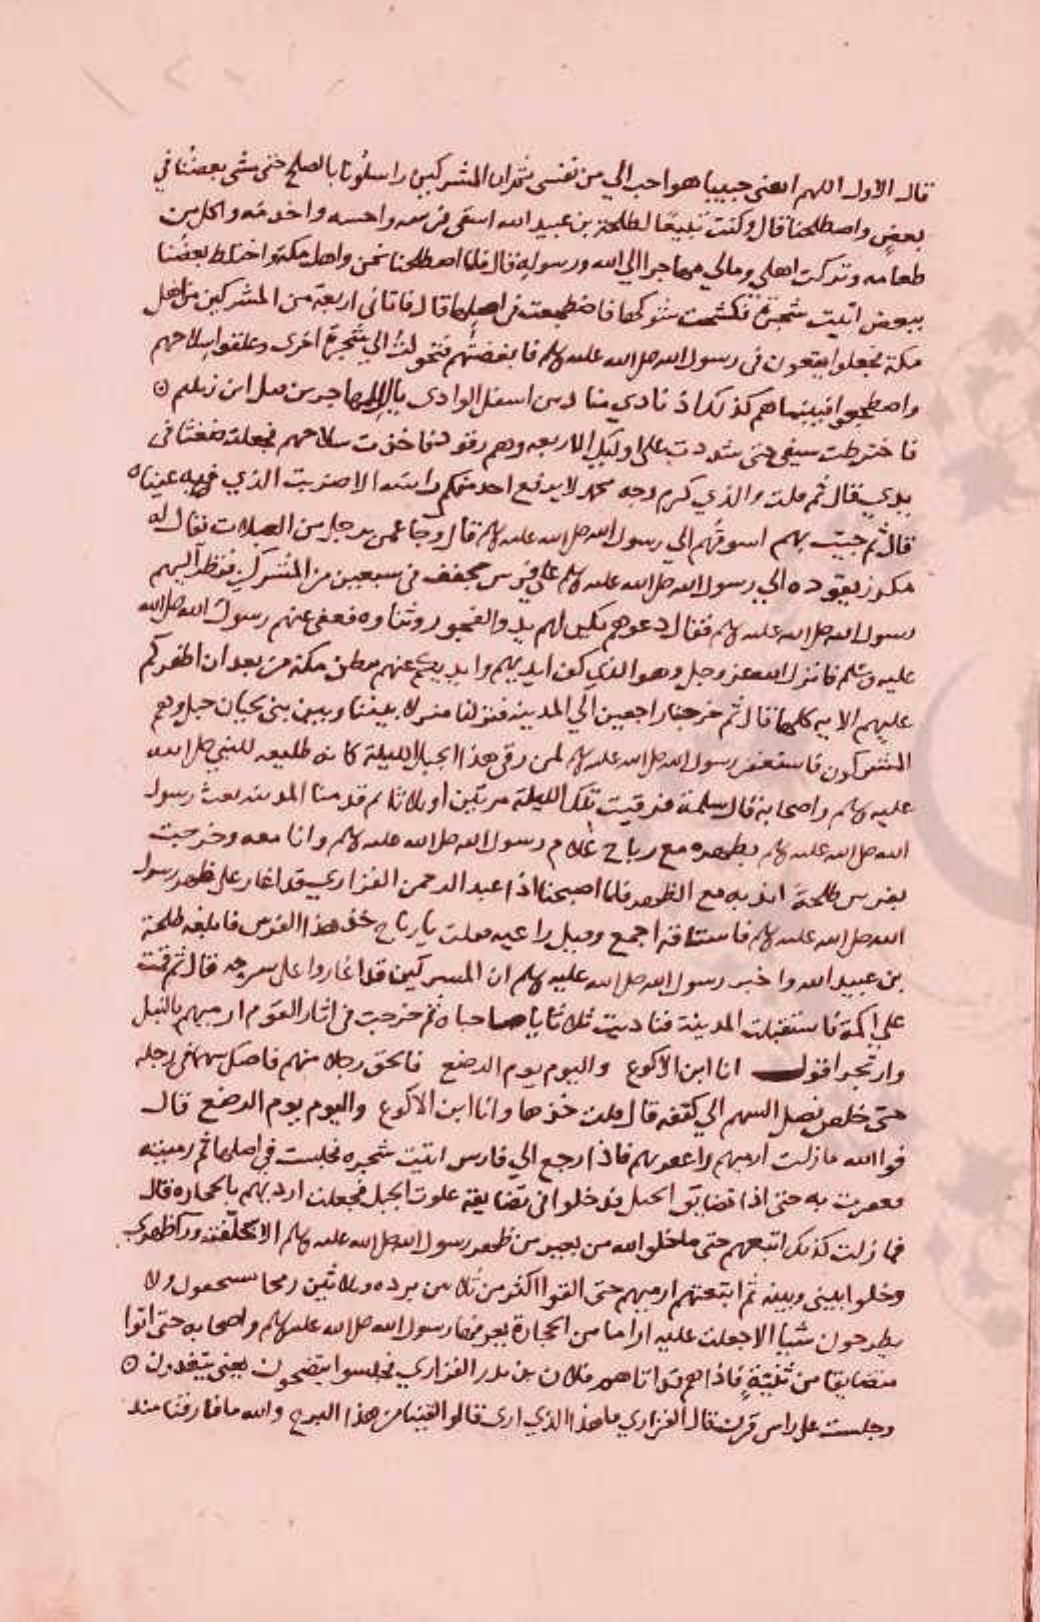 قال الاول اللهم ابغني حبيبا هو احب الي من نفسي ثم ان المشركين راسلونا بالصلح حتى مشى بعضنا في
بعض واصطلحنا قال وكنت تبيعا لطلحة بن عبيد الله اسقي فرسه واحسه واخدمه واكل من
طعامه وتركت اهلي ومالي مهاجرا الي الله ورسوله قال فلما اصطلحنا نحن واهل مكة واختلط بعضنا
ببعض اتيت شجرة فكسحت شوكها فاضطجعت في اصلها قال فاتاني اربعة من المشركين من اهل
مكة فجعلوا يقعون في رسول الله صلى الله عليه وسلم فابغضتهم فتحولت الي شجرة اخرى وعلقوا سلاحهم
واضطجعوا فبينما هم كذلك اذ نادي مناد من اسفل الوادى يال المهاجرين قتل ابن زنيم
فاخترطت سيفي حتى شددت على اوليك الاربعه وهم رقود فاخذت سلاحهم فجعلته ضغثا في
يدي قال ثم قلت والذي كرم وجه محمد لا يرفع احد منكم راسه الا ضربت الذي فيه عيناه
قال ثم جيت بهم اسوقهم الي رسول الله صلى الله عليه وسلم قال وجا عمي برجل من العبلات يقال له
مكرز يقوده الي رسول الله صلى الله عليه وسلم على فرس مجفف في سبعين من المشركين فنظر اليهم
رسول الله صلى الله عليه وسلم فقال دعوهم يكن لهم بدو الفجور وثناوه فعفى عنهم رسول الله صلى الله
عليه وسلم فانزل الله عز وجل وهو الذي كف ايديهم وايديكم عنهم ببطن مكة من بعد ان اظفركم
عليهم الايه كلها قال ثم خرجنا راجعين الي المدينه فنزلنا منزلا بيننا وبين بني لحيان جبل وهم
المشركون فاستغفر رسول الله صلى الله عليه وسلم لمن رقى هذا الجبل الليلة كانه طليعه للنبي صلى الله
عليه وسلم واصحابه قال سلمة فرقيت تلك الليلة مرتين او ثلاثا ثم قدمنا المدينه بعث رسول
الله صلى الله عليه وسلم بظهره مع رباح غلام رسول الله صلى الله عليه وسلم وانا معه وخرجت
بفرس طلحة انديه مع الظهر فلما اصبحنا اذا عبد الرحمن الفزاري قد اغار على ظهر رسول
الله صلى الله عليه وسلم فاستاقه اجمع وقتل راعيه فقلت يا رباح خذ هذا الفرس فابلغه طلحة
بن عبيد الله واخبر رسول الله صلى الله عليه وسلم ان المشركين قد اغاروا على سرحه قال ثم قمت
علي اكمة فاستقبلت المدينة فناديت ثلاثا يا صاحباه ثم خرجت في اثار القوم ارميهم بالنبل
وارتجز اقول انا ابن الاكوع واليوم يوم الرضع فالحق رجلا منهم فاصك سهما في رجله
حتى خلص نصل السهم الي كتفه قال قلت خذها وانا ابن الاكوع واليوم يوم الرضع قال
فوالله ما زلت ارميهم واعقر بهم فاذا رجع الي فارس اتيت شجره فجلست في اصلها ثم رميته
فعقرت به حتى اذا تضايق الجبل فدخلوا في تضايقه علوت الجبل فجعلت ارديهم بالحجاره قال
فما زلت كذلك اتبعهم حتى ما خلق الله من بعير من ظهر رسول الله صلى الله عليه وسلم الا خلفته ورا ظهري
وخلوا بيني وبينه ثم اتبعتهم ارميهم حتى القوا اكثر من ثلاثين برده وثلاثين رمحا يستخفون ولا
يطرحون شيا الا جعلت عليه اراما من الحجارة يعرفها رسول الله صلى الله عليه وسلم واصحابه حتى اتوا
متضايقا من ثنية فاذا هم قد اتاهم فلان بن بدر الفزاري فجلسوا يتضحون يعني يتغدون
وجلست على راس قرن قال الفزاري ما هذا الذي ارى قالوا لقينا من هذا البرح والله ما فارقنا منذ